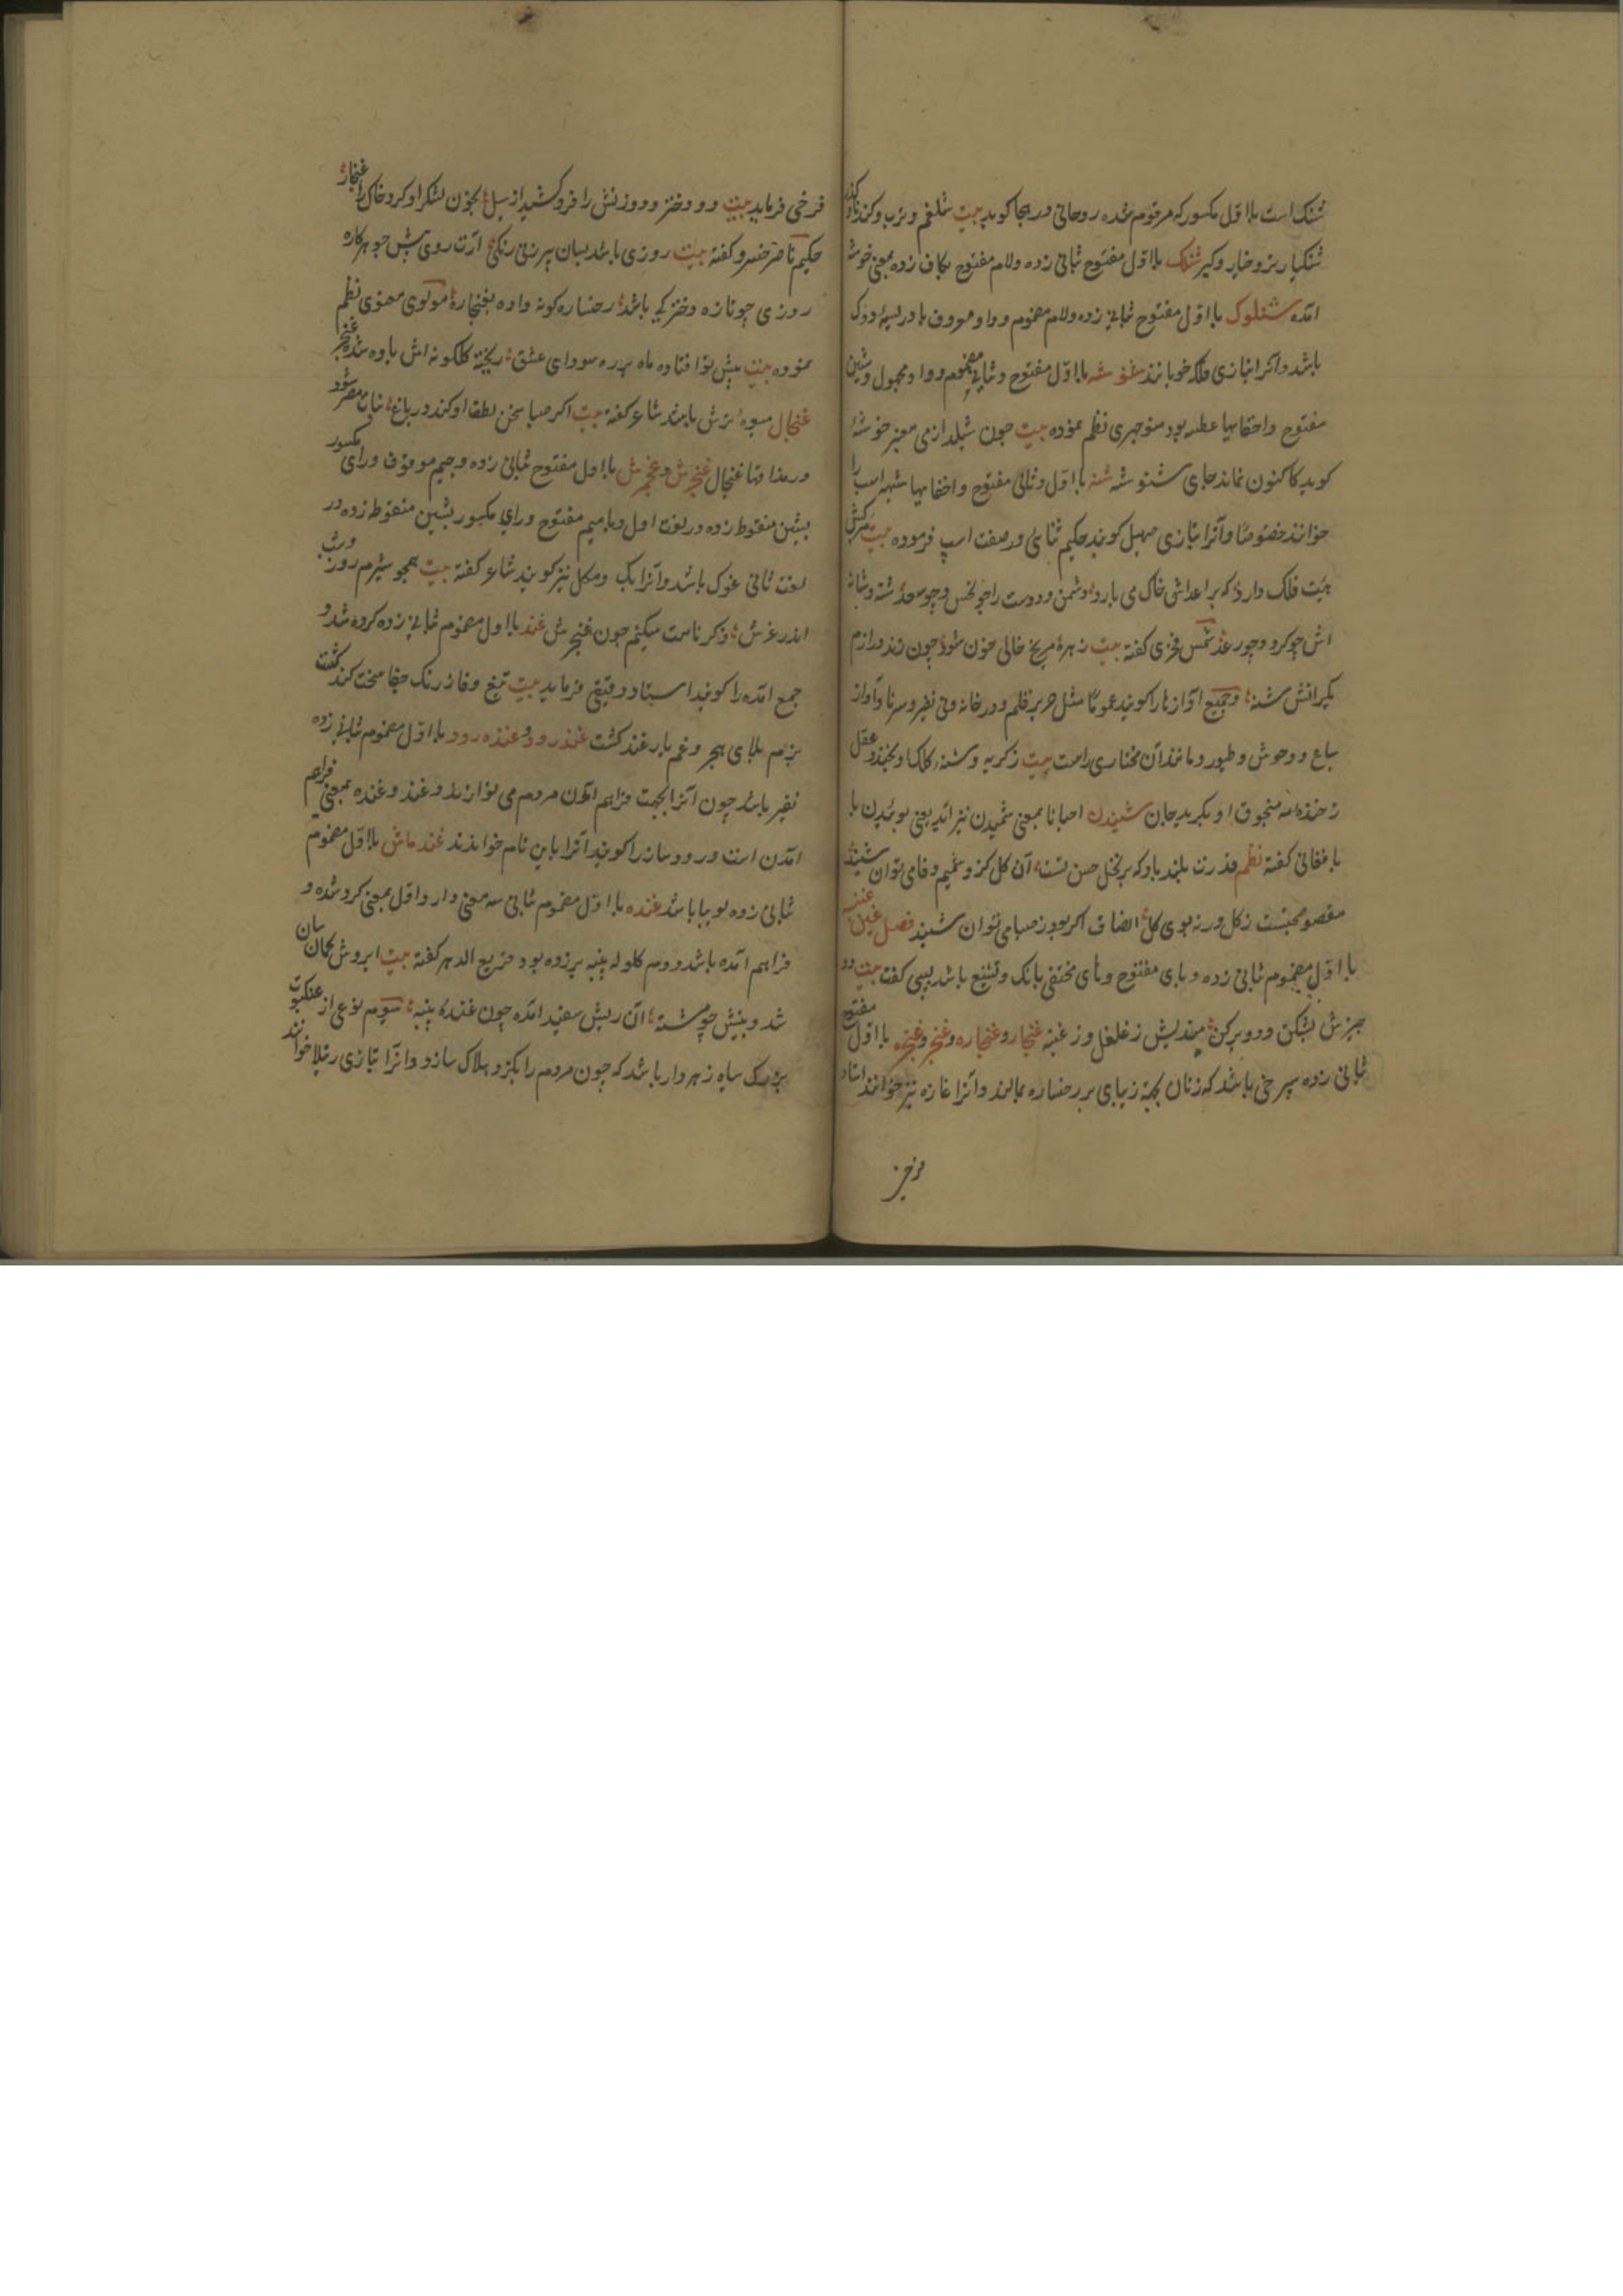 شنک است بااول مکسور که مرقوم شده روحانی در هجا کوید بیت شلغم و ترب و کندنا و کذر
شنکیار بزو خیار و کیر شنلک بااول مفتوح ثبانی زده ولام مفتوح بکاف زده بمعنی خوشه
امده شنلوک بااول مفتوح ثبانی زده ولام مضموم و واو معروف بادریسه دوک
باشد وآنرا بتازی فلکه خوانند شنوشه بااول مفتوح و ثبانی مضموم و واو مجهول و شین
مفتوح و اخفا بها عطسه بود منوچهری نظم نموده بیت چون
کوید کا کنون نماند جای شنوشه شنه بااول و ثانی مفتوح و اخفا بها شیهه اسب را
خوانند خصوصًا وآنرا بتازی صهیل کویند حکیم ثنائی در صفت اسپ فرموده بیت سرکش
هیئت فلک دارد که بر اعداش خاک می بارد دشمن و دوست را چو نحس و چو سعد شنه و شانه
اش چو کرد و چو رعد شمس فخری کفته بیت زهرهٔ مریخ خالی خون شود چون زند در رزم
یکرانش شنه و جمیع آوازها را کویند عمومًا مثل صریر قلم و در خانه و نی نفیر و سرنا وآواز
سباع و وحوش و طیور و مانند آن مختاری راست بیت ز کریه و شنه کلک او بخندد عقل
ز خنده مه منجوق او بکرید جان شنیدن احیانا بمعنی شمیدن نیز اید یعنی بوئیدن با
بافغانی کفته نظم قدرت بلند باد که بر نخل حسن تست آن کل کزو شمیم وفا می توان شنید
مقصود صحبتست ز کل ورنه بوی کل انصاف اکر بود ز صبا می توان شنید فصل غین غنبه
بااول مضموم ثبانی زده و بای مفتوح و های مختفی بانک و تشنیع باشد لبیبی کفت بیت دو
چیزش بشکن و دو پرکن مندیش ز غلغل و ز غنبه غنجار و غنجاره و غنجر و غنجره بااول مفتوح
ثبانی زده سرخی باشد که زنان بجهة زیبای بر رخساره بمالند وآنرا غازه نیز خوانند استاد
فرخی
فرخی فرماید بیت دو دختر و دو زنش را فرو کشید از پیل بخون لشکر او کرد خاک را غنجار
حکیم ناصر خسرو کفته بیت روزی باشد بسان پیر زنی زنکی آرد روی پیش چو هرکاره
روزی چو تازه دخترکی باشد رخساره کونه داده بغنجاره مولوی معنوی نظم
نموده بیت پیش تو افتاده ماه بر ره سودای عشق ریخته کلکونه اش یاوه شده غنجر
غنجال میوه ترش باشد شاعر کفته بیت اکر صبا سخن لطف او کند در باغ نبات مصر شود
در مذاقها غنجال غنجرش و غنجمرش بااول مفتوح ثبانی زده و جیم موقوف و رای مکسور
بشین منقوط زده در لغت اول و بامیم مفتوح و رای مکسور بشین منقوط زده در
لغت ثانی غوک باشد وآنرا بک و مکل نیز کویند شاعر کفته بیت همچو شیرم روز و شب
اندر غرش ذکر نامت میکنم چون غنجرش غند بااول مضموم ثبانی زده کرد شده و
جمع امده را کویند استاد دقیقی فرماید بیت تیغ وفا ز زنک جفا سخت کند کشت
بزم بلای هجر و غم یار غند کشت غندرود و غنده رود بااول مضموم ثبانی زده
نفیر باشد چون آنرا بجهت فراهم آمدن مردم می نوازند و غند و غنده بمعنی فراهم
آمدن است و رود ساز را کویند آنرا باین نام خواندند غند ماش بااول مضموم
ثبانی زده لوبیا باشد غنده بااول مضموم ثبانی سه معنی دارد اول بمعنی کرد شده و
فراهم آمده باشد دوم کلوله پنبه برزده بود قریع الدهر کفته بیت ابروش کمان سان
شد و بینش چو شنه آن ریش سفید آمده چون غندهٔ پنبه سیوم نوعی از عنکبوت
بزرک سیاه زهردار باشد که چون مردم را بکزد هلاک سازد وآنرا بتازی رتیلا خوانند